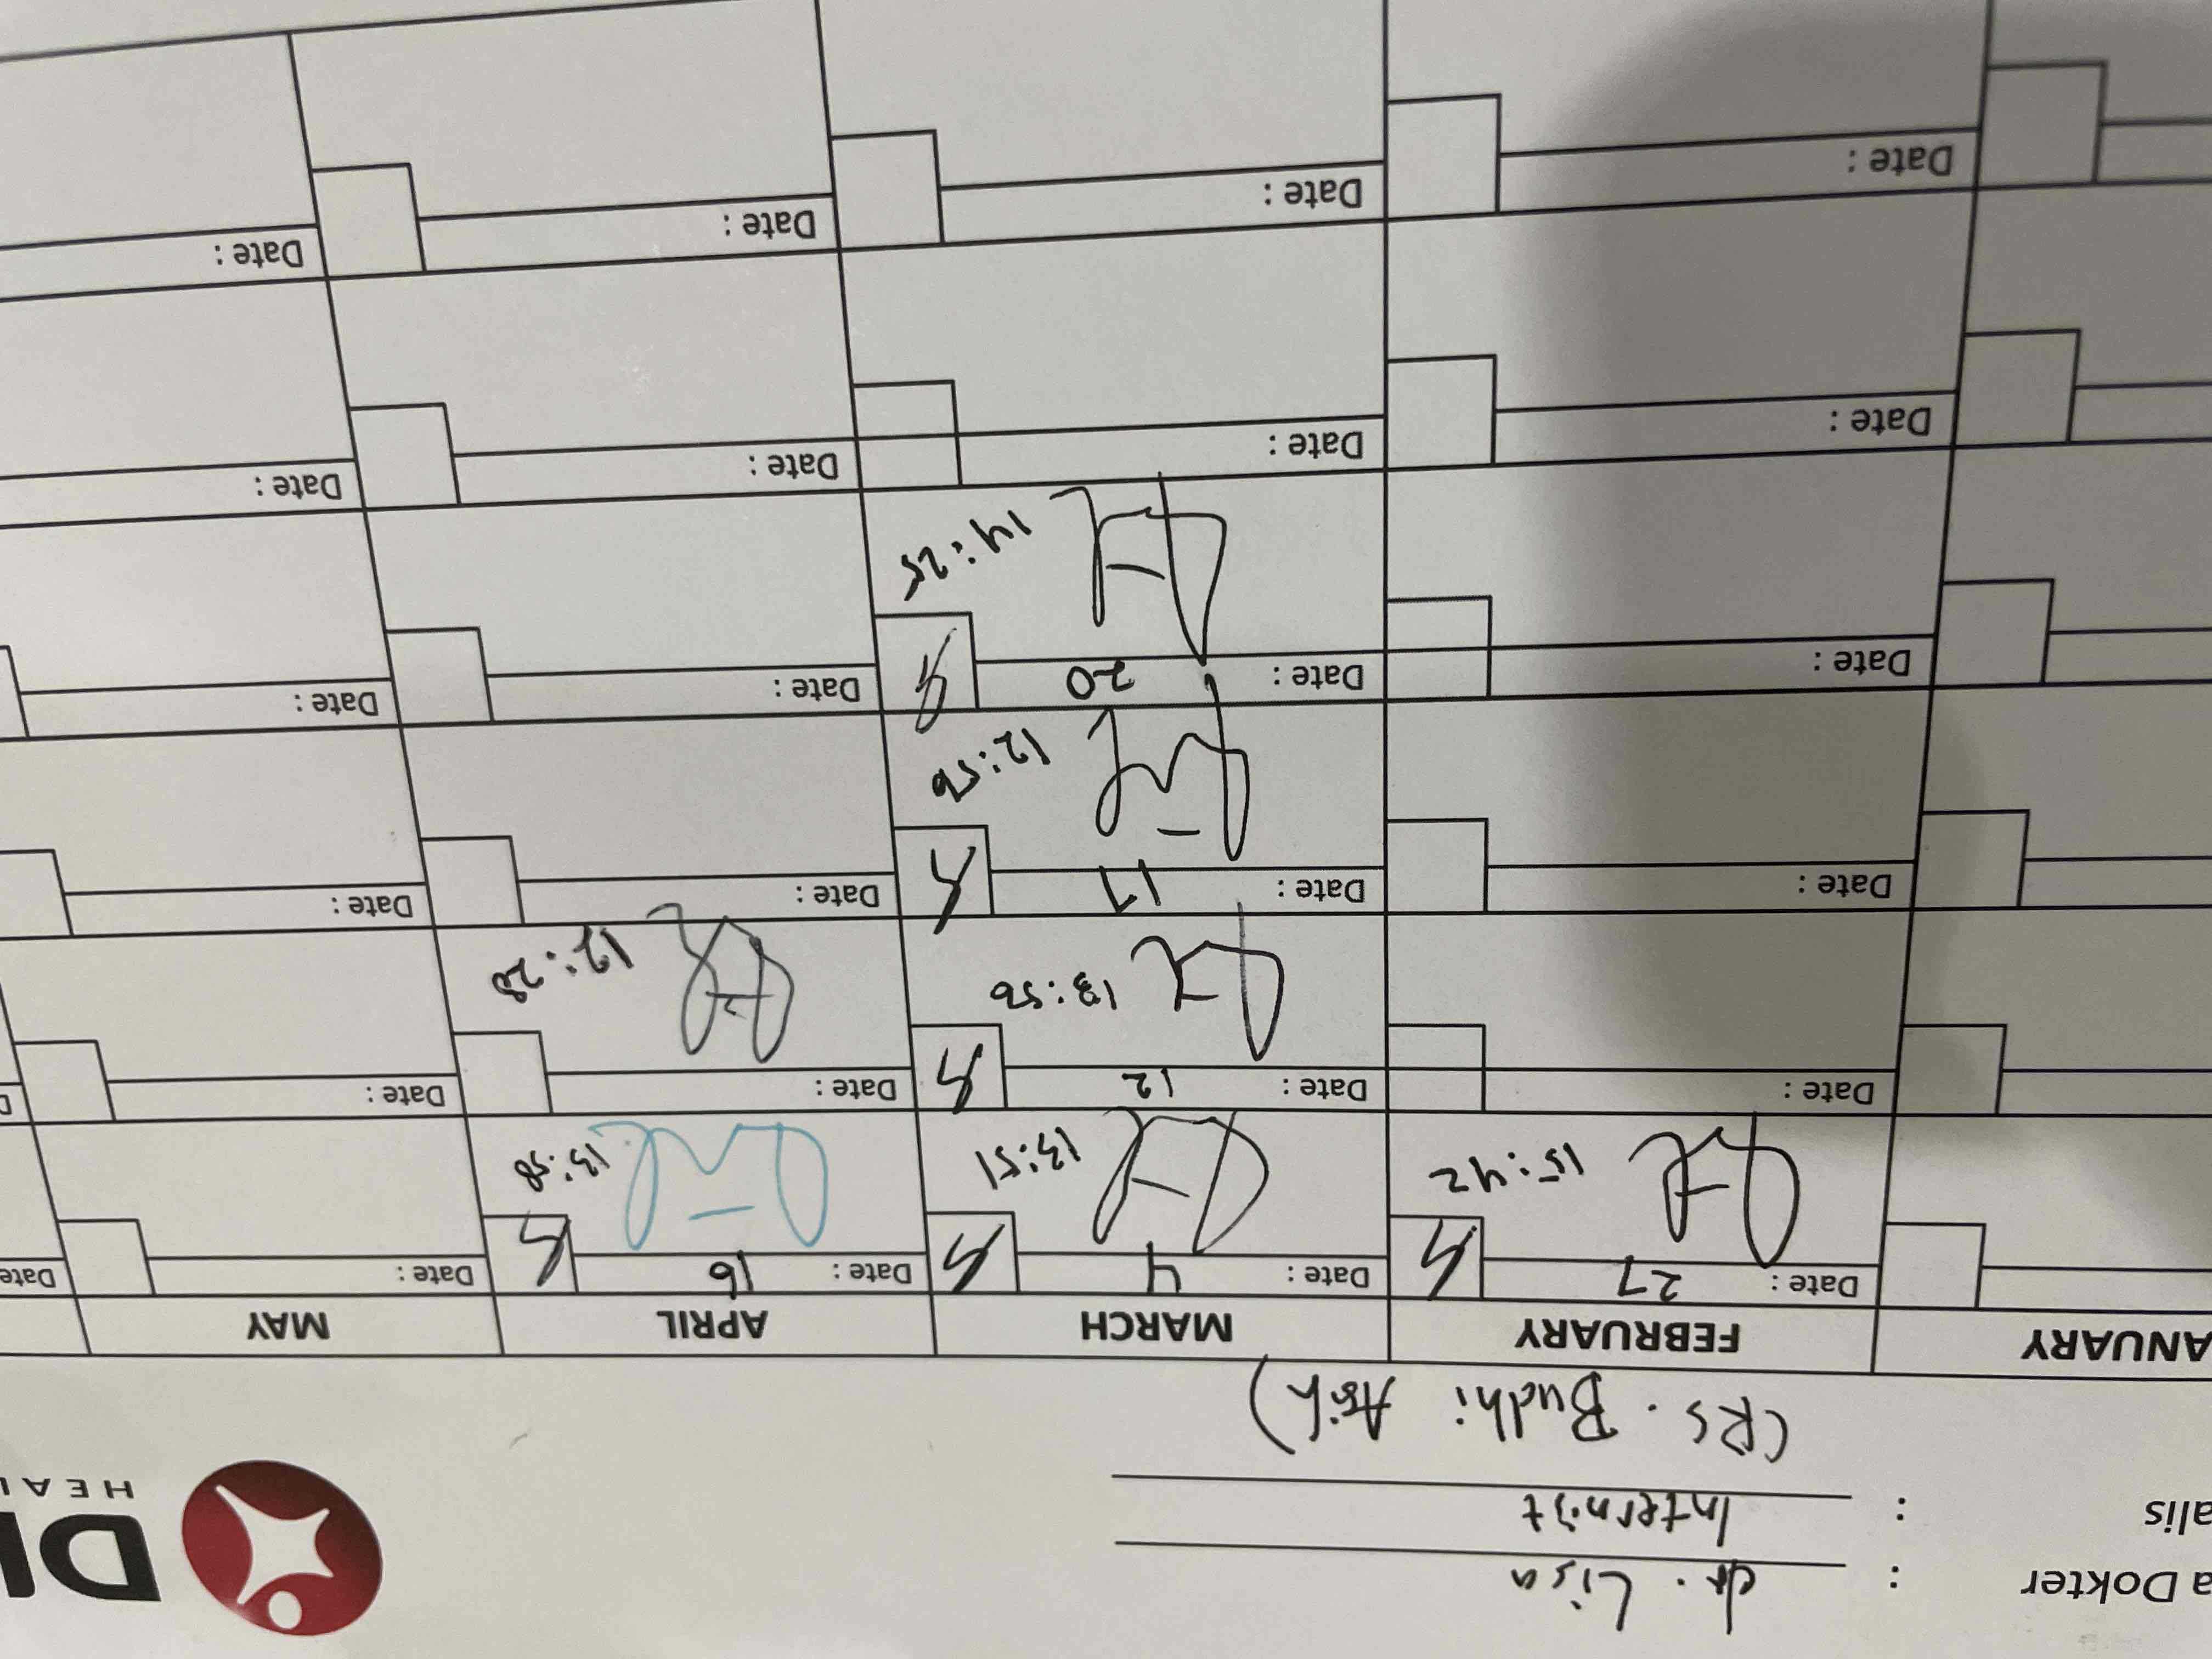 a Dokter : dr. Lisa
alis : Internist
(RS. Budhi Asih)
DI
HEAL
ANUARY FEBRUARY MARCH APRIL MAY
Date : 27 Date : 4 Date : 16 Date : Date
15:42 13:51 13:58
Date : Date : 12 Date : Date : D
13:56 12:28
Date : Date : 17 Date : Date :
12:56
Date : Date : 20 Date : Date :
14:25
Date : Date : Date : Date :
Date : Date : Date : Date :